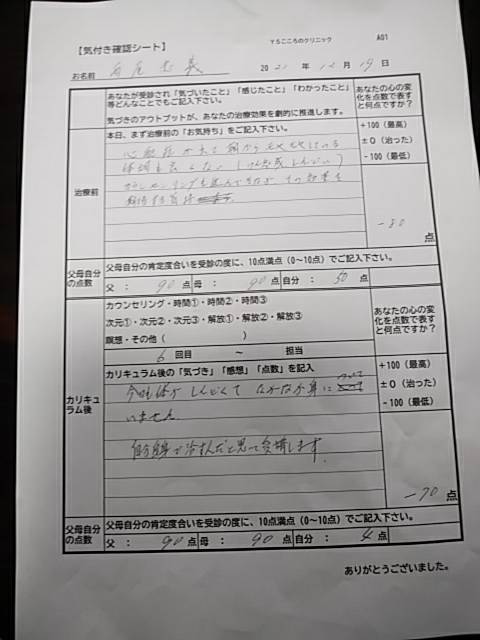 YSこころのクリニック A01
【気付き確認シート】
お名前 2021年12月19日
あなたが受診され「気づいたこと」「感じたこと」「わかったこと」
等どんなことでもご記入下さい。
気づきのアウトプットが、あなたの治療効果を劇的に推進します。
あなたの心の変
化を点数で表す
と何点ですか?
治療前
本日、まず治療前の「お気持ち」をご記入下さい。
+100(最高)
±0(治った)
-100(最低)
-80点
父母自分
の点数
父母自分の肯定度合いを受診の度に、10点満点(0~10点)でご記入下さい。
父: 90点 母: 90点 自分: 50点
カリキュ
ラム後
カウンセリング・時間①・時間②・時間③
次元①・次元②・次元③・解放①・解放②・解放③
瞑想・その他( )
6回目 ~ 担当
あなたの心の変
化を点数で表す
と何点ですか?
カリキュラム後の「気づき」「感想」「点数」を記入
+100(最高)
±0(治った)
-100(最低)
今は体がしんどくてなかなか身に
いません
自分自身で治すんだと思って受講します。
-70点
父母自分
の点数
父母自分の肯定度合いを受診の度に、10点満点(0~10点)でご記入下さい。
父: 90点 母: 90点 自分: 4点
ありがとうございました。